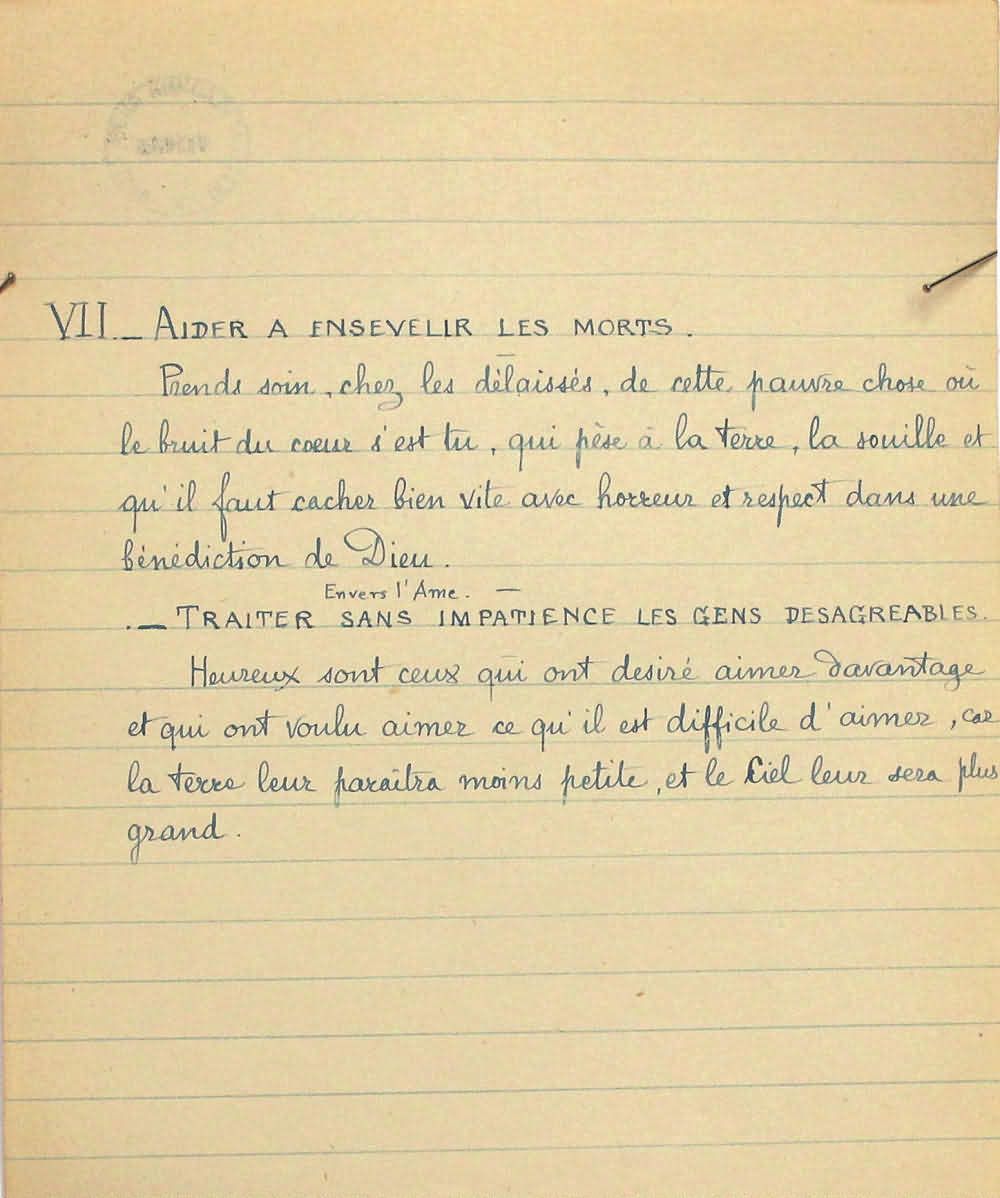 VII._ AIDER A ENSEVELIR LES MORTS.
Prends soin, chez les délaissés, de cette pauvre chose où
le bruit du coeur s'est tu, qui pèse à la terre, la souille et
qu'il faut cacher bien vite avec horreur et respect dans une
bénédiction de Dieu.
Envers l'Ame. —
._ TRAITER SANS IMPATIENCE LES GENS DESAGREABLES.
Heureux sont ceux qui ont desiré aimer davantage
et qui ont voulu aimer ce qu'il est difficile d'aimer, car
la terre leur paraîtra moins petite, et le Ciel leur sera plus
grand.